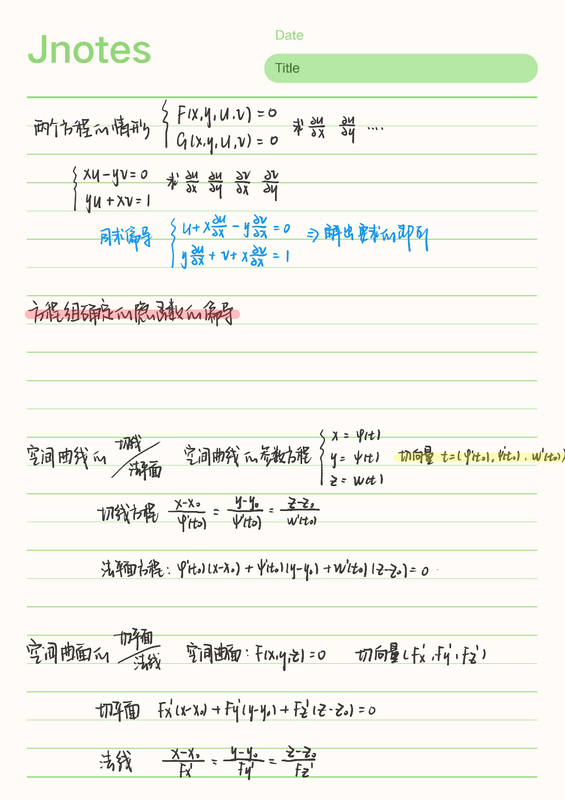 Date
Jnotes
Title
两个方程的情形 { F(x,y,u,v)=0 求 ∂u/∂x ∂u/∂y ....
G(x,y,u,v)=0
{ xu-yv=0 求 ∂u/∂x ∂u/∂y ∂v/∂x ∂v/∂y
yu+xv=1
同求偏导 { u+x∂u/∂x-y∂v/∂x=0 => 解出要求的即可
y∂u/∂x+v+x∂v/∂x=1
方程组确定的隐函数的偏导
空间曲线的 切线/法平面 空间曲线的参数方程 { x=φ(t)
y=ψ(t) 切向量 t=(φ'(t₀),ψ'(t₀),w'(t₀))
z=w(t)
切线方程 x-x₀/φ'(t₀) = y-y₀/ψ'(t₀) = z-z₀/w'(t₀)
法平面方程: φ'(t₀)(x-x₀)+ψ'(t₀)(y-y₀)+w'(t₀)(z-z₀)=0
空间曲面的 切平面/法线 空间曲面: F(x,y,z)=0 切向量(Fx',Fy',Fz')
切平面 Fx'(x-x₀)+Fy'(y-y₀)+Fz'(z-z₀)=0
法线 x-x₀/Fx' = y-y₀/Fy' = z-z₀/Fz'